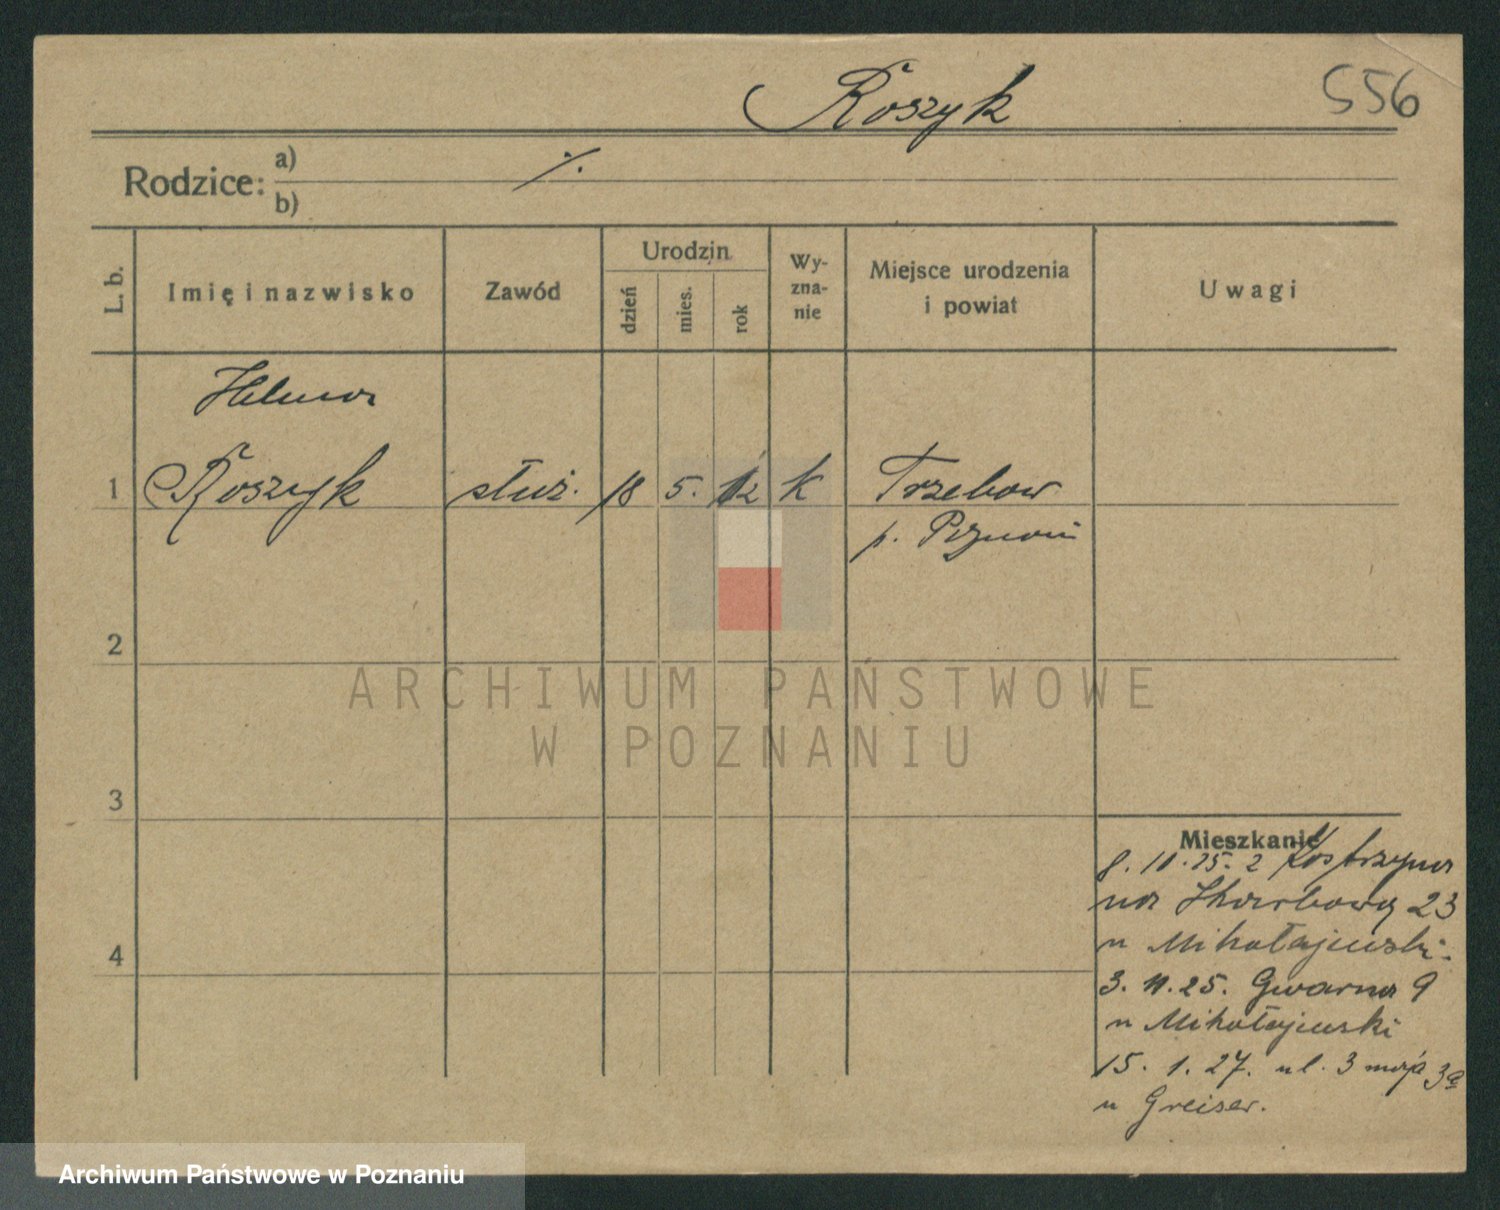 Roszyk
556
Rodzice:
a)
./.
b)
L. b.
Imię i nazwisko
Zawód
Urodzin
dzień
mies.
rok
Wy-
zna-
nie
Miejsce urodzenia
i powiat
Uwagi
Helena
1 Roszyk służ. 18 5. 12 K Trzebaw
p. Poznań
2
3
4
ARCHIWUM PAŃSTWOWE
W POZNANIU
Mieszkanie
8. 10. 25. z Kostrzyna
na Skarbową 23
u Mikołajewski.
3. 11. 25. Gwarna 9
u Mikołajewski
15. 1. 27. ul. 3 maja 3a
u Greiser.
Archiwum Państwowe w Poznaniu